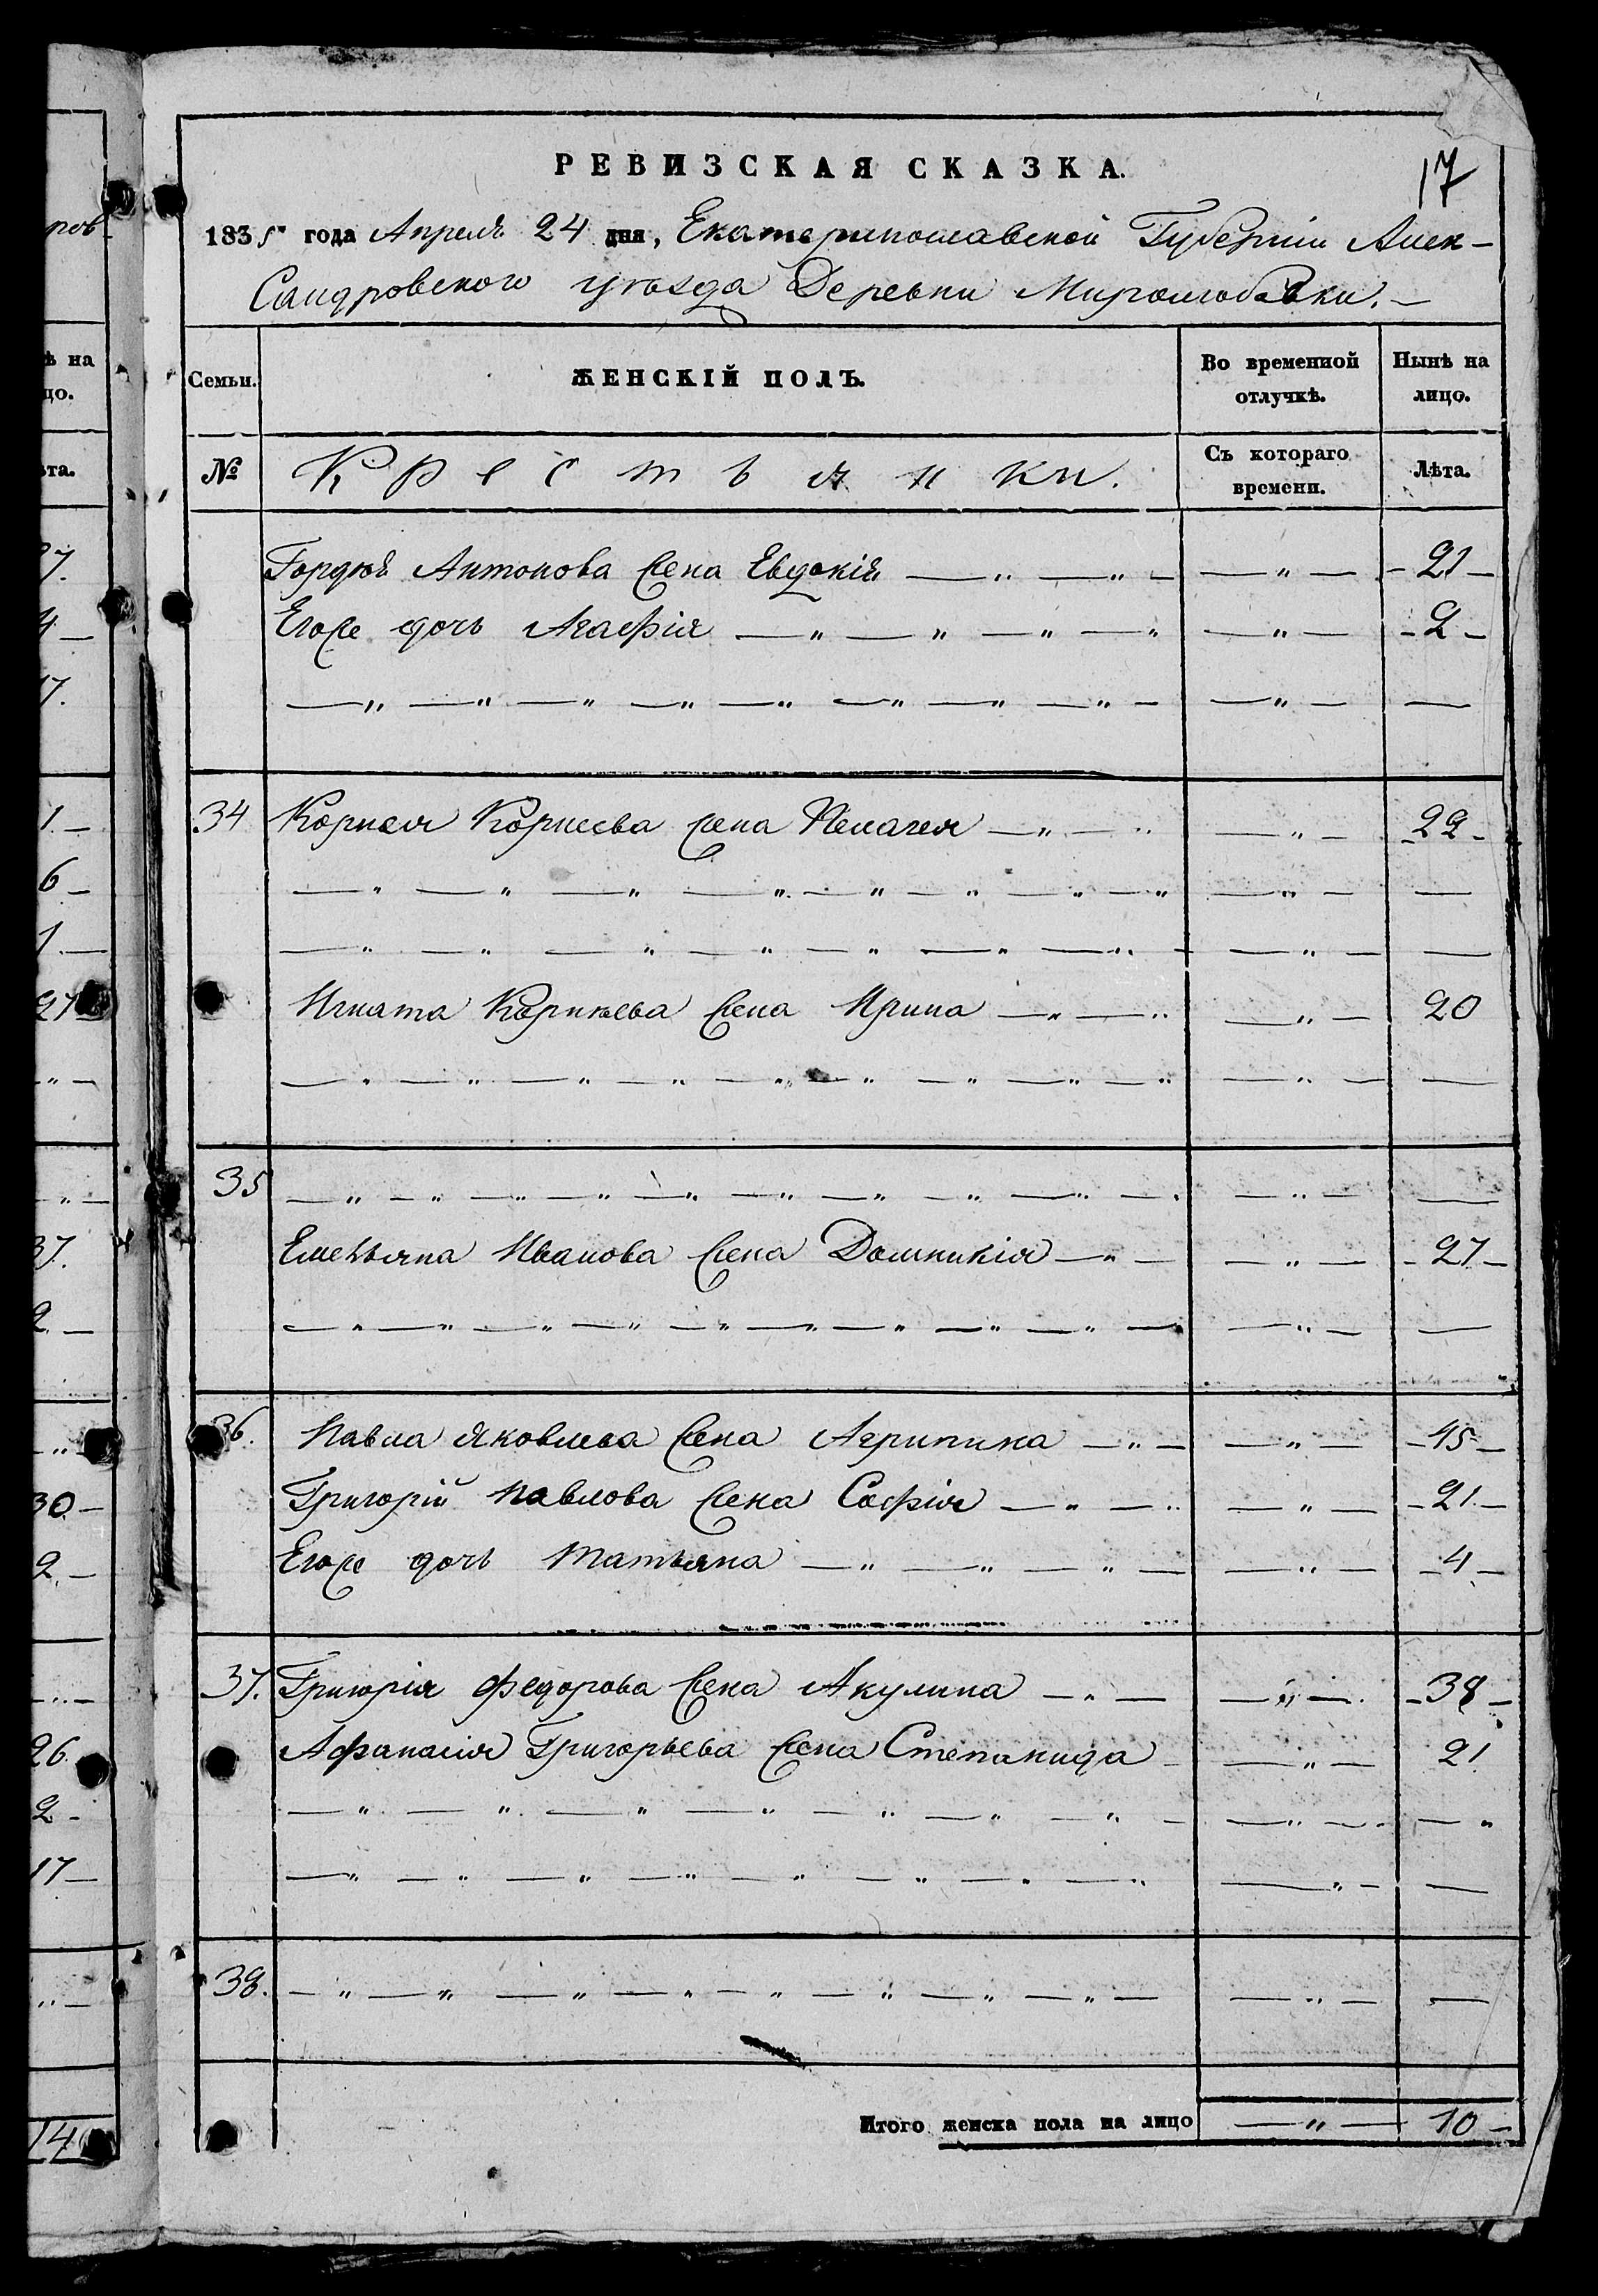 РЕВИЗСКАЯ СКАЗКА.
17
1835 года Апреля 24 дня, Екатеринославской Губернiи Алек-
Сандровского уѣзда Деревни Миролюбовки.
Семьи.
ЖЕНСКIЙ ПОЛЪ.
Во временной отлучкѣ.
Нынѣ на лицо.
№
Крестьянки.
Съ котораго времени.
Лѣта.
Гордѣя Антонова Жена Евдокiя — " — " — — " — - 21 -
Егоже дочь Агафiя — " — " — " — " — " — - 2 -
— " — " — " — " — " — " — " — " — — " — —
34 Корнея Корнеева жена Пелагея — " — " — " — - 22 -
— " — " — " — " — " — " — " — " — " — —
— " — " — " — " — " — " — " — — " — —
Игната Корнѣева Жена Ирина — " — " — " — 20
— " — " — " — " — " — " — " — " — " — " — —
35 — " — " — " — " — " — " — " — " — " — — " — —
Емельяна Иванова Жена Домникiя — " — — " — - 27 -
— " — " — " — " — " — " — " — " — " — — " — —
36. Павла Яковлева Жена Агрипина — " — — " — - 45 -
Григорiй Павлова Жена Софiя — " — " — " — - 21 -
Егоже дочь Татьяна — " — " — " — — " — - 4 -
37. Григорiя Федорова Жена Акулина — " — — " — - 38 -
Афанасiя Григорьева Жена Степанида — — " — 21.
— " — " — " — " — " — " — " — — " — — "
— " — " — " — " — " — " — " — " — " — —
38. — " — " — " — " — " — " — " — " — — " — —
Итого женска пола на лицо — " — 10 -